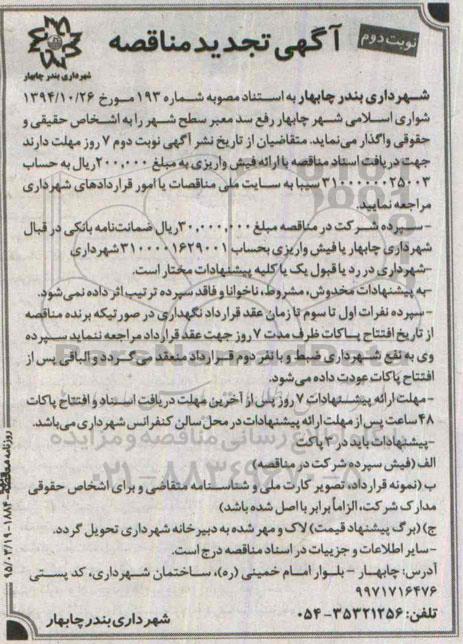 نوبت دوم
آگهی تجدید مناقصه
شهرداری بندر چابهار
شهرداری بندر چابهار به استناد مصوبه شماره ۱۹۳ مورخ ۱۳۹۴/۱۰/۲۶
شورای اسلامی شهر چابهار رفع سد معبر سطح شهر را به اشخاص حقیقی و
حقوقی واگذار می‌نماید. متقاضیان از تاریخ نشر آگهی نوبت دوم ۷ روز مهلت دارند
جهت دریافت اسناد مناقصه با ارائه فیش واریزی به مبلغ ۲۰۰,۰۰۰ریال به حساب
۳۱۰۰۰۰۰۰۲۵۰۰۳ سیبا به سایت ملی مناقصات یا امور قراردادهای شهرداری
مراجعه نمایید.
-سپرده شرکت در مناقصه مبلغ ۳۰,۰۰۰,۰۰۰ریال ضمانت‌نامه بانکی در قبال
شهرداری چابهار یا فیش واریزی بحساب ۳۱۰۰۰۰۱۶۲۹۰۰۱شهرداری
-شهرداری در رد یا قبول یک یا کلیه پیشنهادات مختار است.
-به پیشنهادات مخدوش، مشروط، ناخوانا و فاقد سپرده ترتیب اثر داده نمی‌شود.
-سپرده نفرات اول تا سوم تا زمان عقد قرارداد نگهداری در صورتیکه برنده مناقصه
از تاریخ افتتاح پاکات ظرف مدت ۷ روز جهت عقد قرارداد مراجعه ننماید سپرده
وی به نفع شهرداری ضبط و با نفر دوم قرارداد منعقد می‌گردد و الباقی پس از
افتتاح پاکات عودت داده می‌شود.
-مهلت ارائه پیشنهادات ۷ روز پس از آخرین مهلت دریافت اسناد و افتتاح پاکات
۴۸ ساعت پس از مهلت ارائه پیشنهادات در محل سالن کنفرانس شهرداری می‌باشد.
-پیشنهادات باید در ۳ پاکت
الف (فیش سپرده شرکت در مناقصه)
ب (نمونه قرارداد، تصویر کارت ملی و شناسنامه متقاضی و برای اشخاص حقوقی
مدارک شرکت، الزاماً برابر با اصل شده باشد)
ج) (برگ پیشنهاد قیمت) لاک و مهر شده به دبیرخانه شهرداری تحویل گردد.
-سایر اطلاعات و جزییات در اسناد مناقصه درج است.
آدرس: چابهار - بلوار امام خمینی (ره)، ساختمان شهرداری، کد پستی
۹۹۷۱۷۱۶۴۷۶
تلفن: ۳۵۳۲۱۲۵۶-۰۵۴
شهرداری بندر چابهار
۹۵/۰۳/۱۹-۱۸۸۴
۰۲۱-۸۸۳۴۹۶۷۰